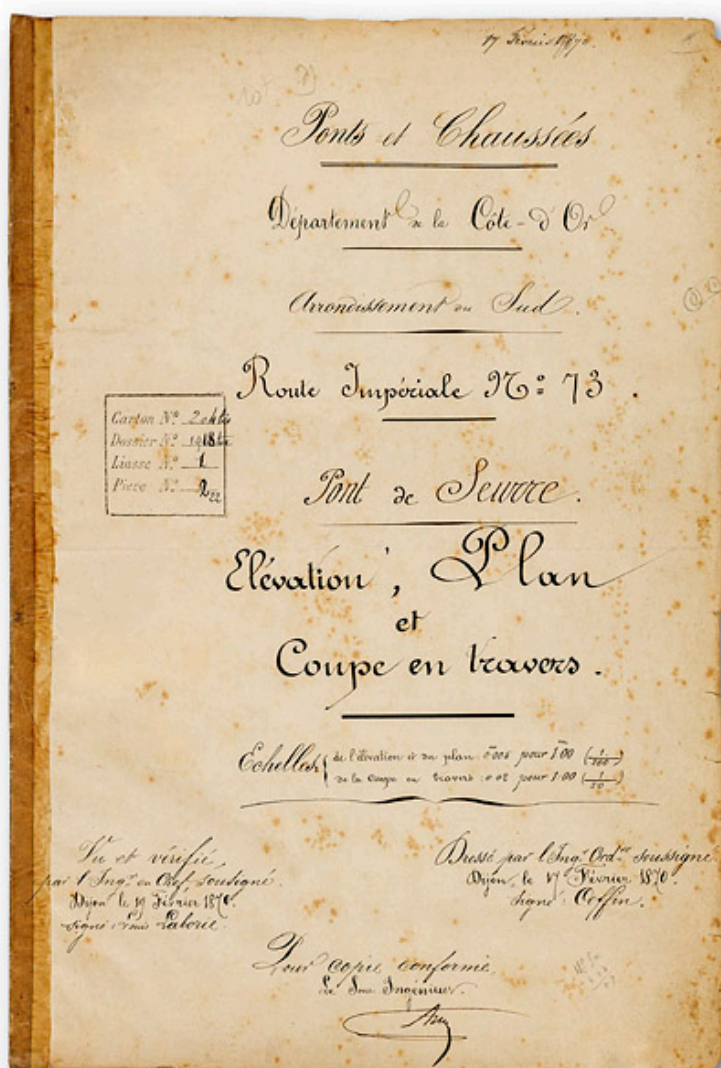 17 Février 1870.
Ponts et Chaussées
Département de la Côte-d'Or
Arrondissement du Sud.
Route Impériale Nº 73.
Carton Nº
Dossier Nº
Liasse Nº 1
Piece Nº
Pont de Seurre.
Elévation, Plan
et
Coupe en travers.
Echelles
de l'élévation et du plan: 0.005 pour 1.00
de la coupe en travers: 0.02 pour 1.00 (1/50)
Vu et vérifié
par l'Ingr en Chef, soussigné
Dijon le 19 Février 1870.
signé: Laborie.
Dressé par l'Ingr Ordre soussigné
Dijon, le 17 Février 1870.
signé: Coffin.
Pour copie conforme,
Le Ingénieur.